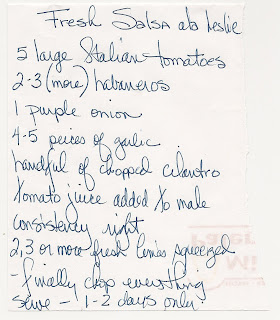 Fresh Salsa ala Leslie
5 large Italian tomatoes
2-3 (more) habaneros
1 purple onion
4-5 peices of garlic
handful of chopped cilantro
tomato juice added to make
consistency right
2,3 or more fresh limes squeezed
- finally chop everything
serve - 1-2 days only